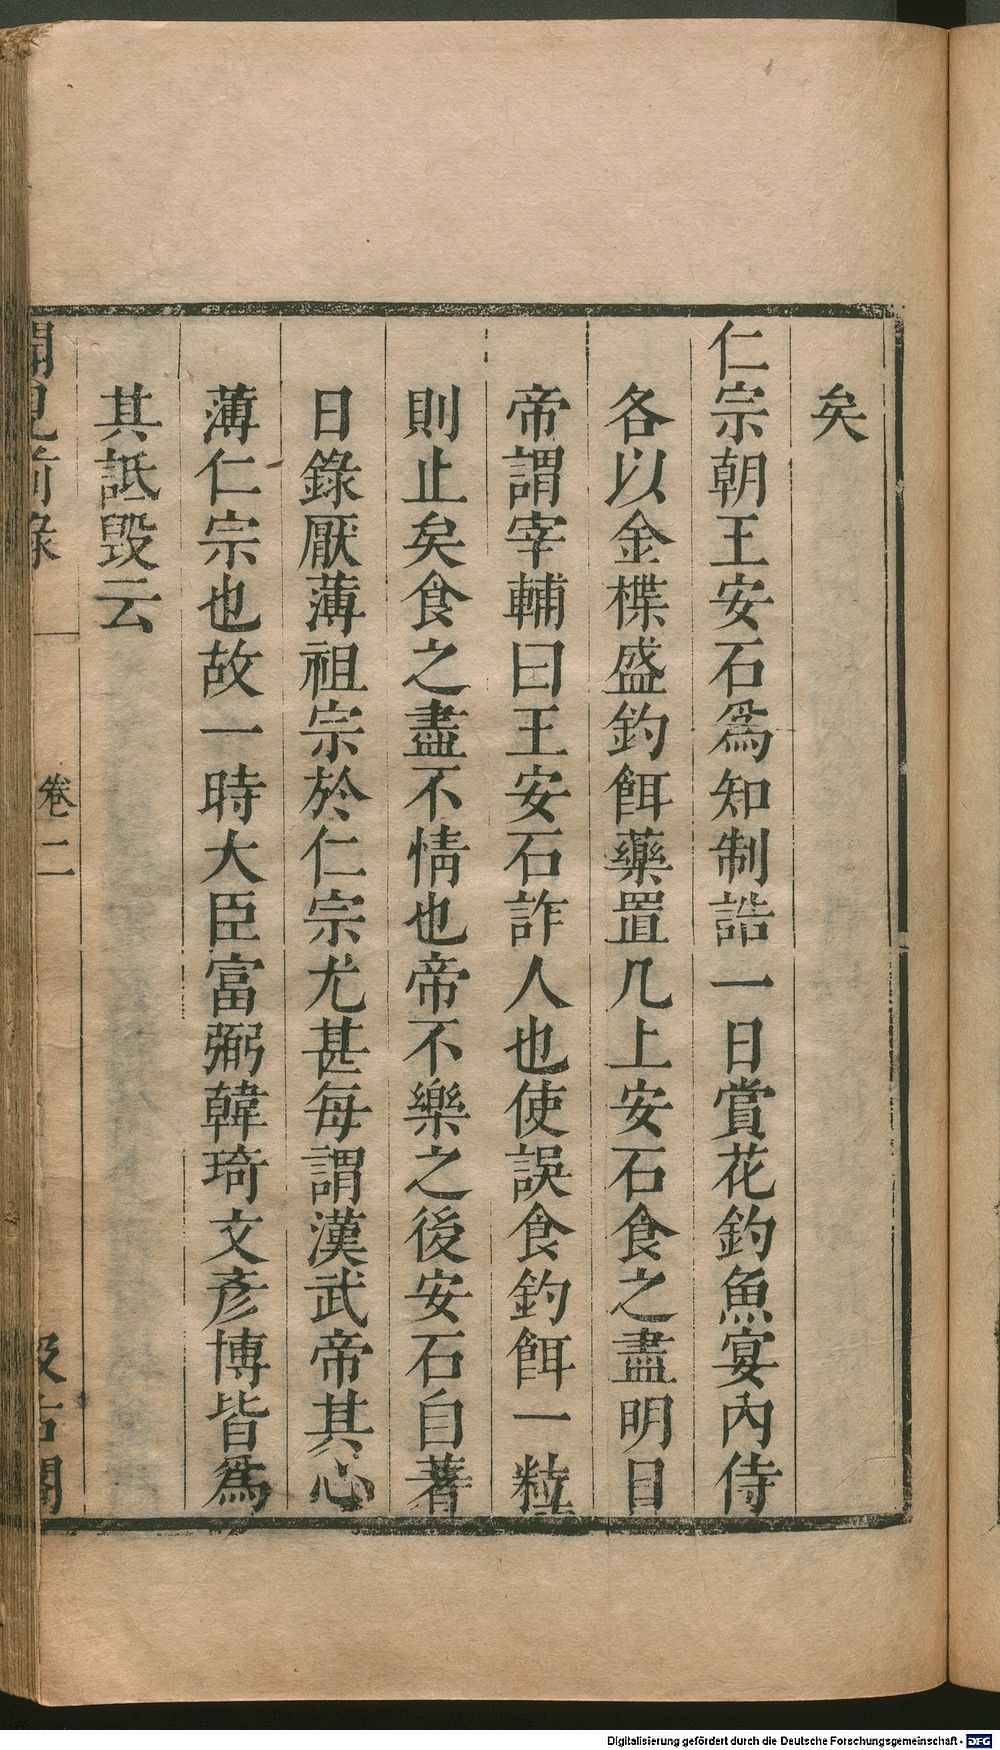 矣
仁宗朝王安石爲知制誥一日賞花釣魚宴內侍
各以金楪盛釣餌藥置几上安石食之盡明日
帝謂宰輔曰王安石詐人也使誤食釣餌一粒
則止矣食之盡不情也帝不樂之後安石自著
日錄厭薄祖宗於仁宗尤甚每謂漢武帝其心
薄仁宗也故一時大臣富弼韓琦文彥博皆爲
其詆毀云
聞見前錄
卷二
汲古閣
Digitalisierung gefördert durch die Deutsche Forschungsgemeinschaft - DFG